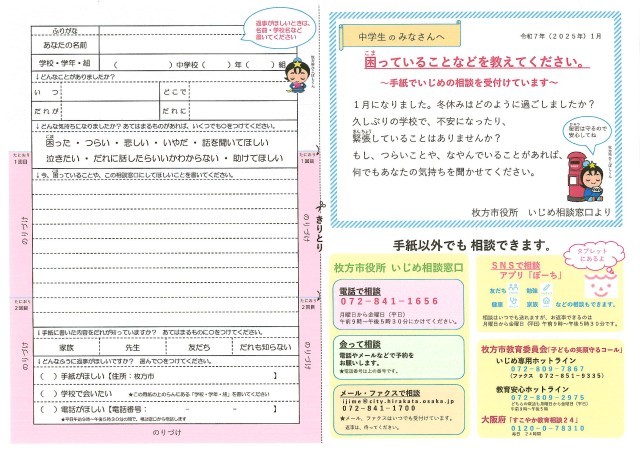 返事がほしいときは、
名前・学校名など
書いてください
ふりがな
あなたの名前
学校・学年・組 （ ）中学校（ ）年（ ）組
↓どんなことがありましたか？
いつ どこで
だれが だれに
↓どんな気持ちになりましたか？ あてはまるものがあれば、いくつでも○をつけてください。
困った ・ つらい ・ 悲しい ・ いやだ ・ 話を聞いてほしい
泣きたい ・ だれに話したらいいかわからない ・ 助けてほしい
↓今、困っていることや、この相談窓口にしてほしいことを書いてください。
たにおり
1回目
たにおり
1回目
のりづけ
のりづけ
きりとり
たにおり
2回目
たにおり
2回目
↓手紙に書いた内容をだれが知っていますか？ あてはまるものに○をつけてください。
家族 先生 友だち だれも知らない
↓どんなふうに返事がほしいですか？ 選んで○をつけてください。
（ ）手紙がほしい【住所：枚方市 】
（ ）学校で会いたい ★この用紙の上のらんにある「学校・学年・組」を書いてください
（ ）電話がほしい【電話番号： － － 】
★平日午前9時～午後5時30分の間で、相談窓口から電話します
のりづけ
中学生のみなさんへ
令和7年（2025年）1月
こま
困っていることなどを教えてください。
～手紙でいじめの相談を受付けています～
1月になりました。冬休みはどのように過ごしましたか？
久しぶりの学校で、不安になったり、
きんちょう
緊張していることはありませんか？
もし、つらいことや、なやんでいることがあれば、
何でもあなたの気持ちを聞かせてください。
秘密は守るので
安心してね
枚方市役所 いじめ相談窓口より
手紙以外でも 相談できます。
タブレット
にあるよ
枚方市役所 いじめ相談窓口
電話で相談
072-841-1656
月曜日から金曜日（平日）
午前9時～午後5時30分にかけてください。
会って相談
電話やメールなどで予約を
お願いします。
★電話番号は上の番号です。
メール・ファクスで相談
ijime@city.hirakata.osaka.jp
072-841-1700
★メール、ファクスはいつでも受付けています。
返事は、待ってください。
SNSで相談
アプリ「ぽーち」
友だち 勉強
健康 家族 などの相談もできます。
相談はいつでも送れますが、お返事できるのは
月曜日から金曜日（平日）午前9時～午後5時30分です。
枚方市教育委員会「子どもの笑顔守るコール」
いじめ専用ホットライン
072-809-7867
（ファクス 072-851-9335）
教育安心ホットライン
072-809-2975
どちらの電話も月曜日から金曜日（平日）
午前9時～午後5時
大阪府「すこやか教育相談24」
0120-0-78310
毎日 24時間